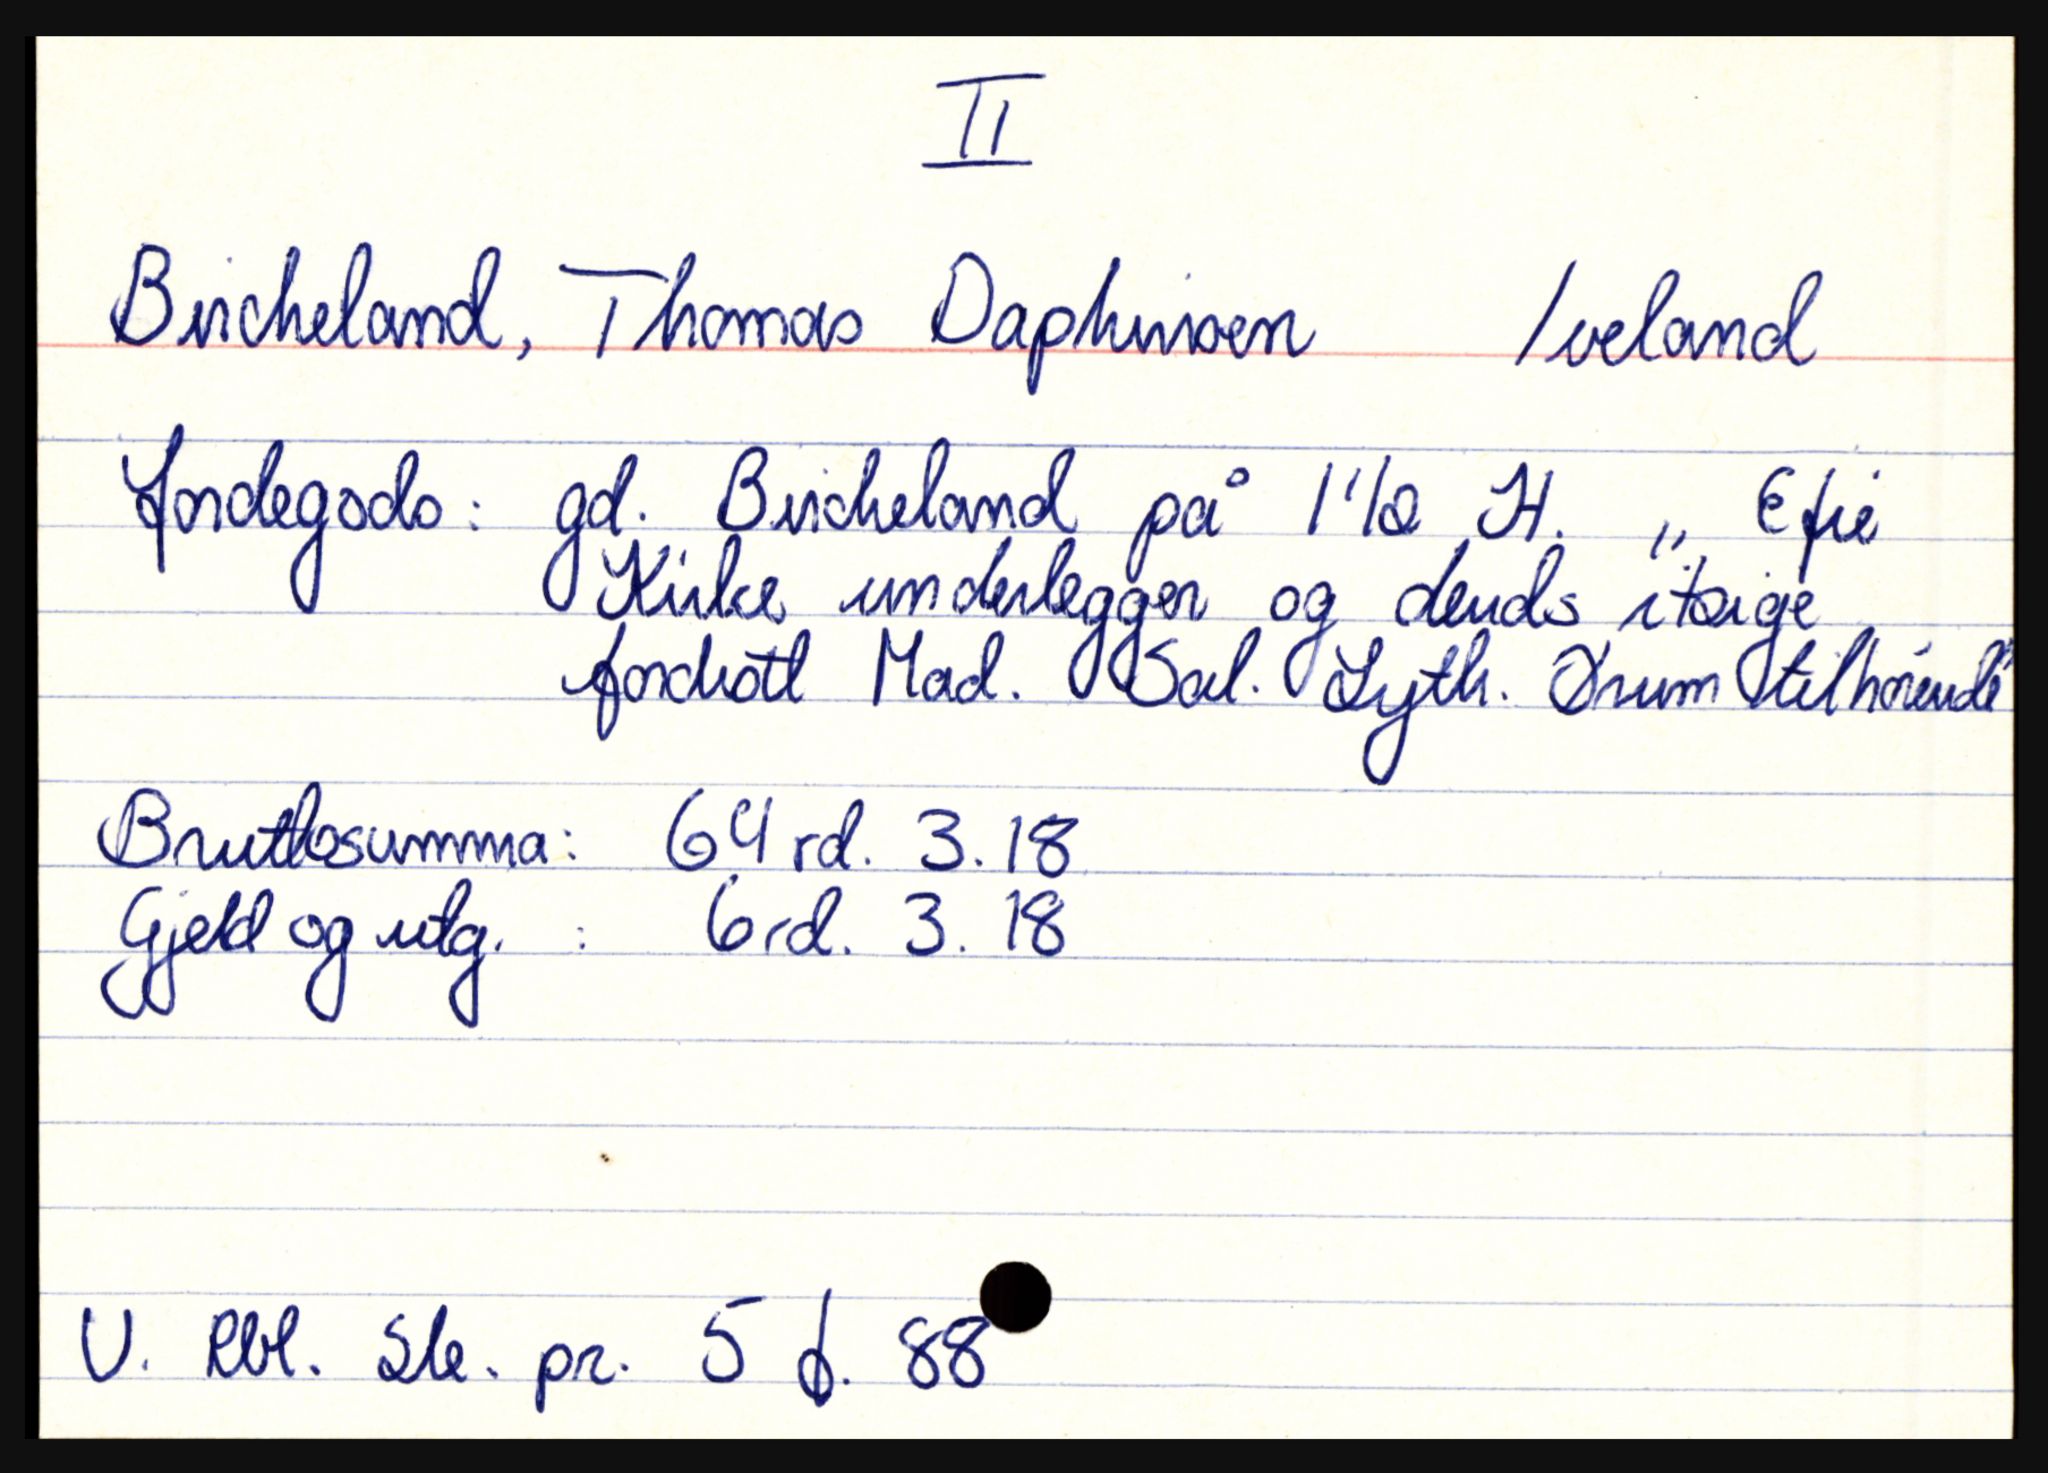 II
Bircheland, Thomas Daphinsen Iveland
Jordegods: gd. Bircheland på 1 1/2 H. „ Efie
Kirke underlegger og dends itzige
fordrott Mad. Sal. Lyth. Ørum tilhørende"
Bruttosumma: 64 rd. 3. 18
Gjeld og utg. : 6 rd. 3. 18
V. Rbl. Ske. pr. 5 f. 88